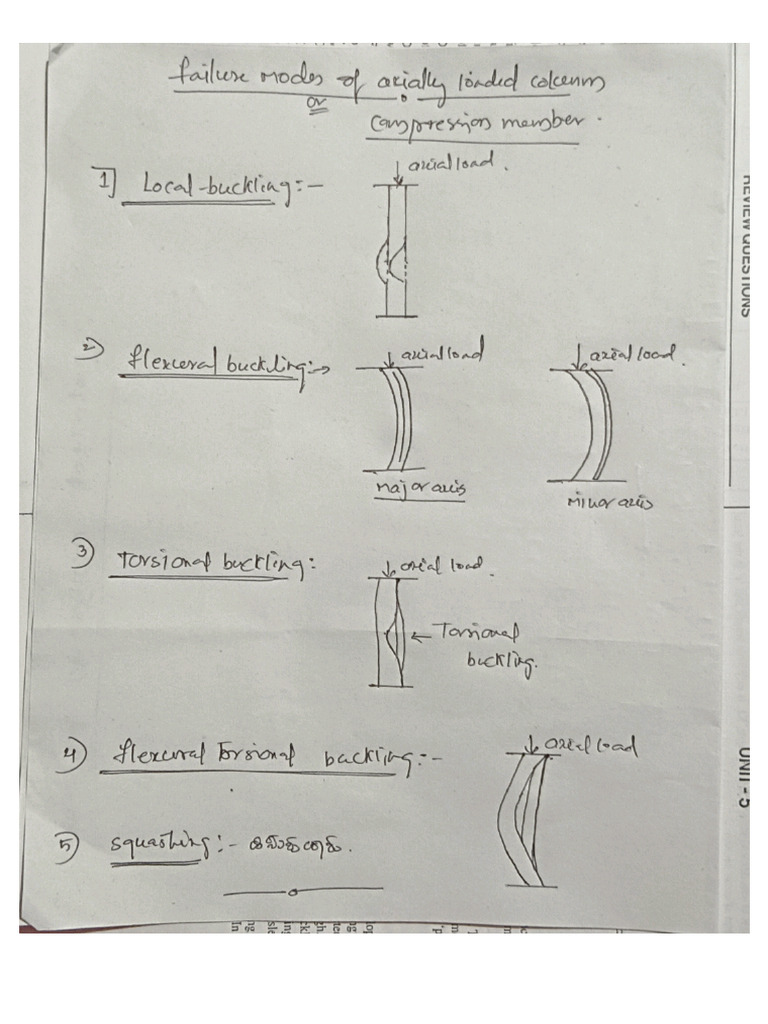 failure modes of axially loaded column
or
compression member.
1] Local-buckling:-
axial load.
2) flexural buckling:→
axial load
axial load.
major axis
minor axis
3) Torsional buckling:
axial load.
← Torsional
buckling.
4) flexural Torsional backling:-
axial load
5) squashing:-
REVIEW QUESTIONS
UNIT - 5